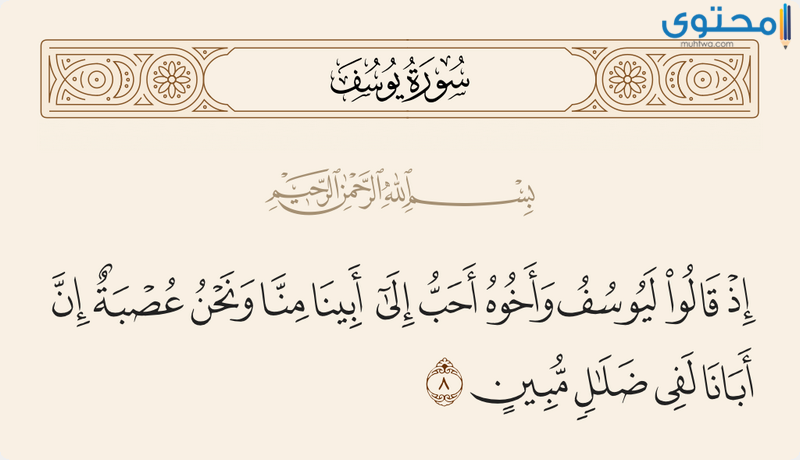 محتوى
muhtwa.com
سُورَةُ يُوسُفَ
بِسْمِ ٱللَّهِ ٱلرَّحْمَٰنِ ٱلرَّحِيمِ
إِذْ قَالُوا۟ لَيُوسُفُ وَأَخُوهُ أَحَبُّ إِلَىٰٓ أَبِينَا مِنَّا وَنَحْنُ عُصْبَةٌ إِنَّ
أَبَانَا لَفِى ضَلَـٰلٍ مُّبِينٍ ٨